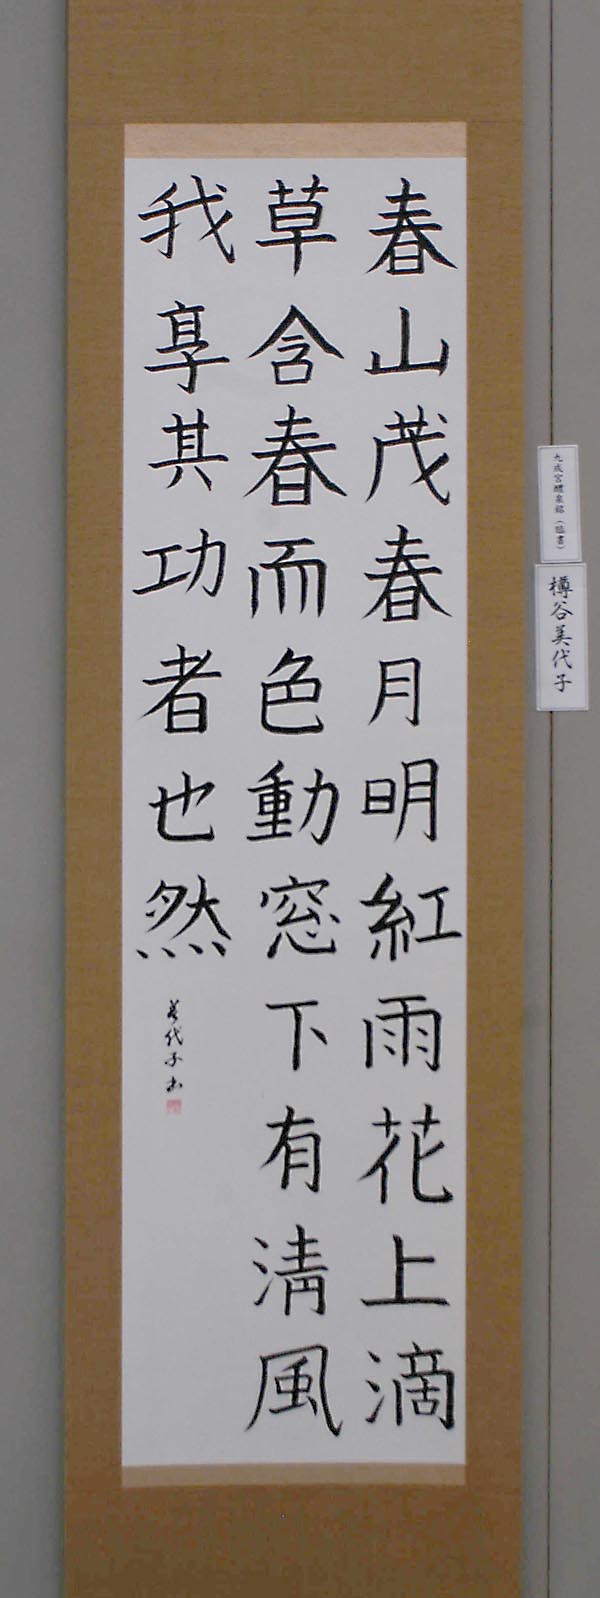 春山茂春月明紅雨花上滴
草含春而色動窓下有清風
我享其功者也然
美代子書
九成宮醴泉銘(臨書)
樽谷美代子